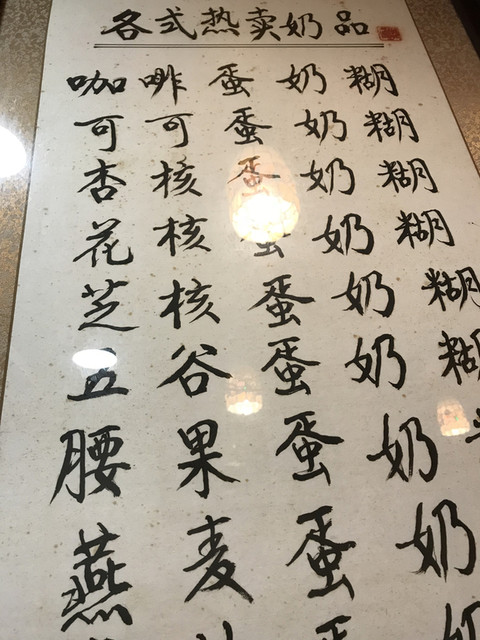 各式热卖奶品
咖啡蛋奶糊
可可蛋奶糊
杏核蛋奶糊
花核蛋奶糊
芝核蛋奶糊
五谷蛋奶糊
腰果蛋奶
燕麦蛋奶